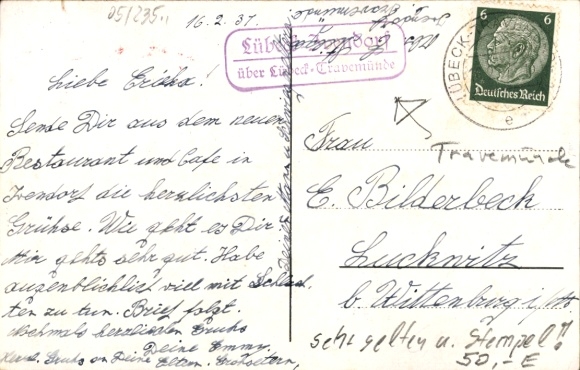 05/235..
16.2.37.
Lübeck-Ivendorf
über Lübeck-Travemünde
6 6
Deutsches Reich
LÜBECK-
e
Liebe Erika!
Sende Dir aus dem neuen
Restaurant und Cafe in
Ivendorf die herzlichsten
Grühse. Wie geht es Dir.
Mir gehts sehr gut. Habe
augenblicklich viel mit Schlach
ten zu tun. Brief folgt.
Nochmals herzlichen Gruhs
Deine Emmy.
Herzl. Gruhs an Deine Eltern. Grohseltern,
Frau
Travemünde
E. Bilderbeck
Luckwitz
b. Wittenburg i/M.
sehr selten u. Stempel!!
50,- E